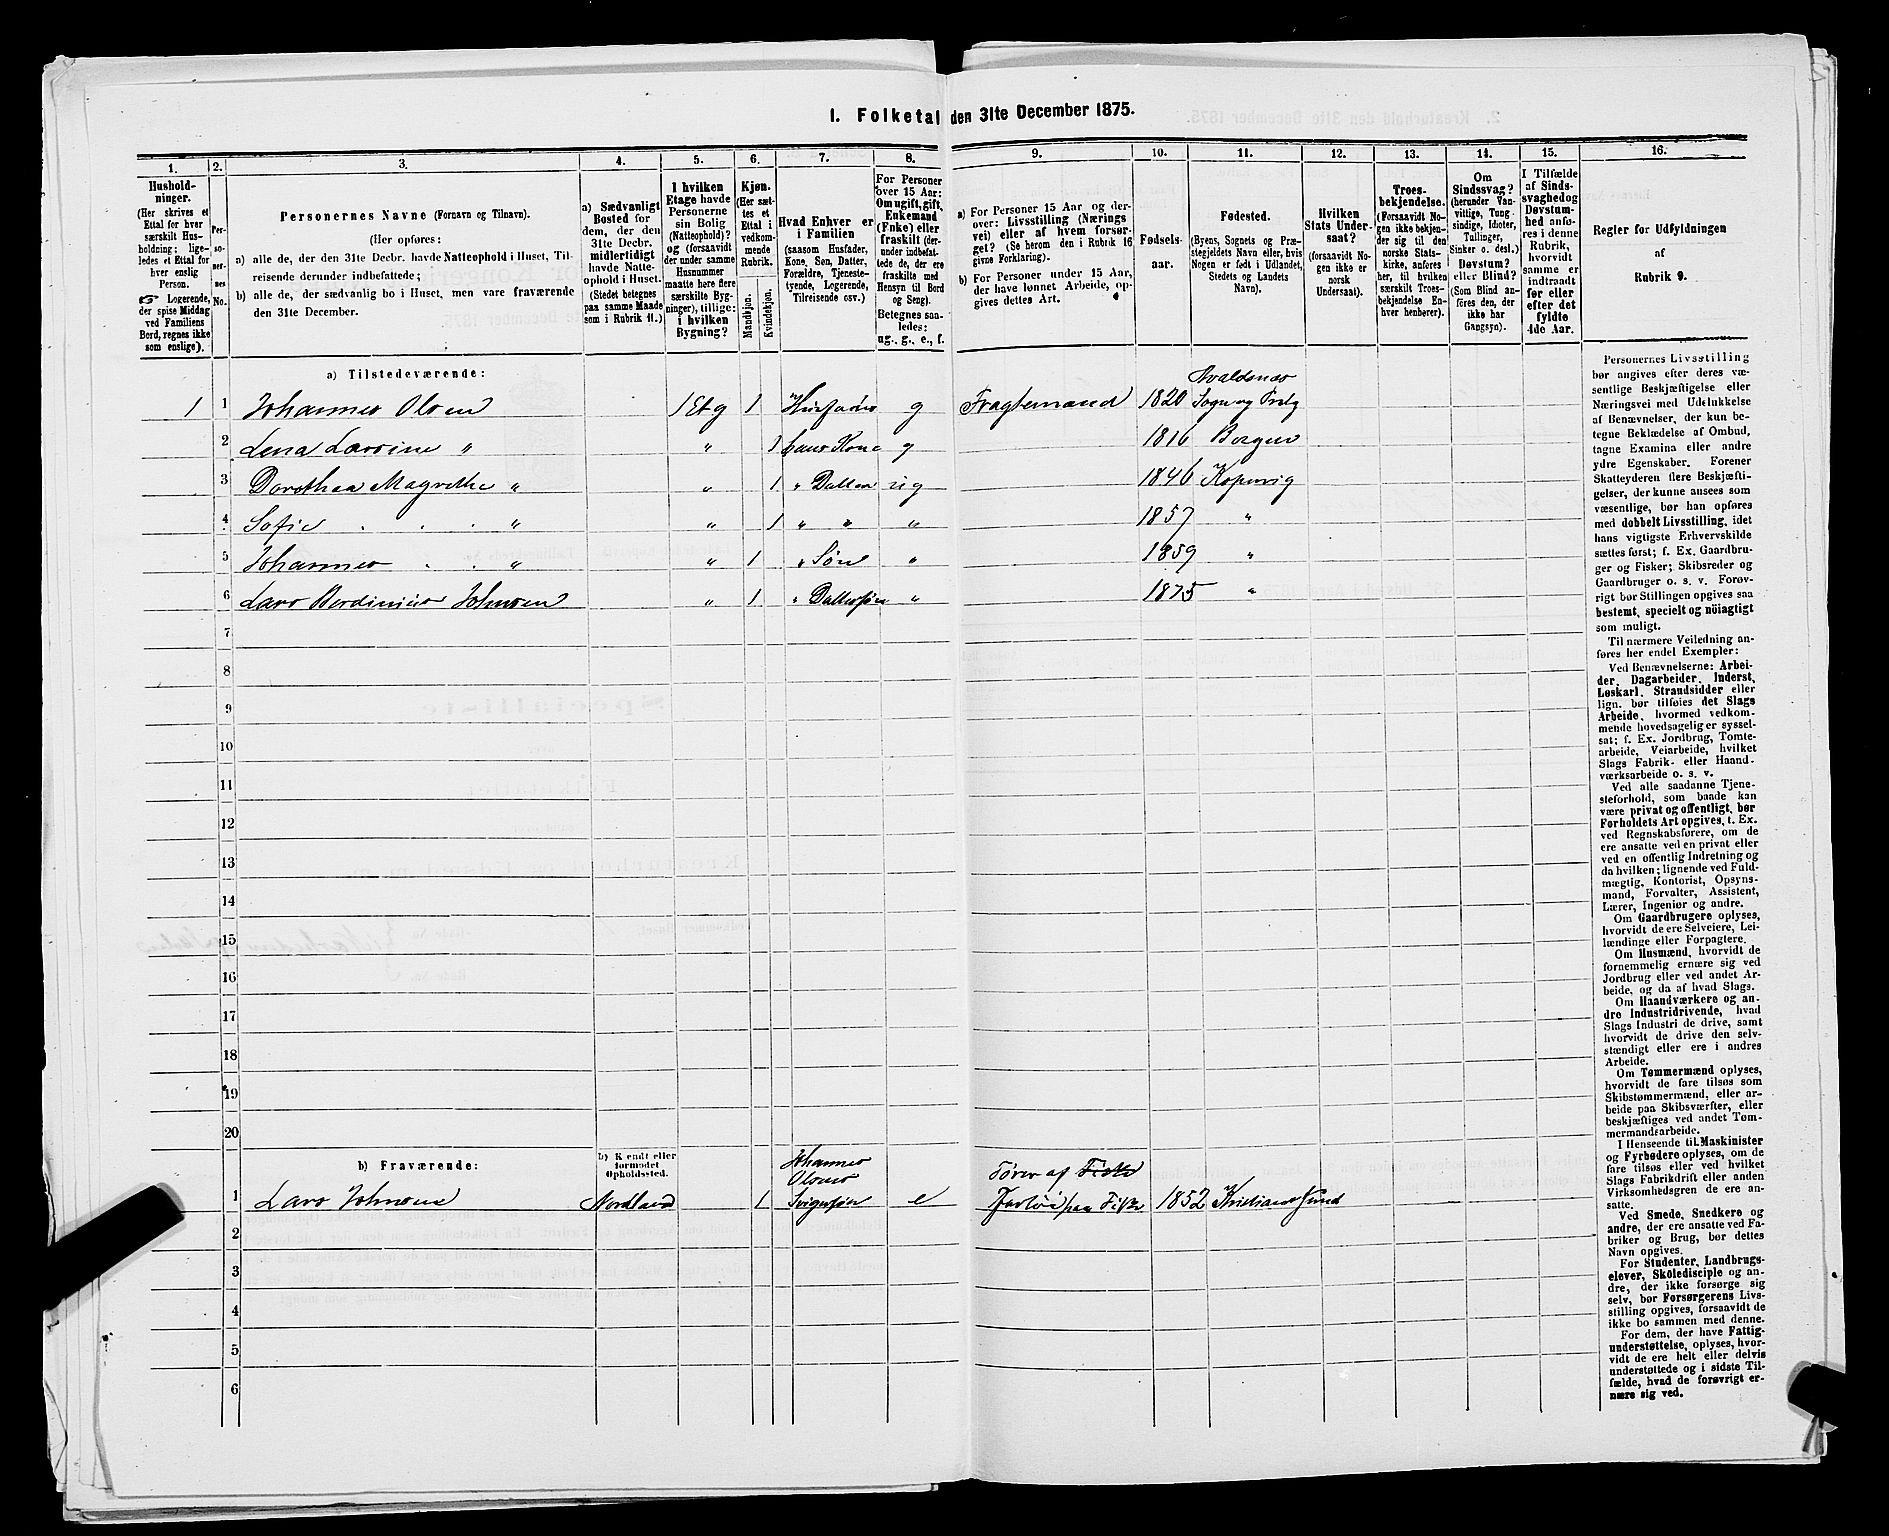 1. Folketal den 31te December 1875.
1.
2.
3.
4.
5.
6.
7.
8.
9.
10.
11.
12.
13.
14.
15.
16.
Hushold-
ninger.
(Her skrives et
Ettal for hver
særskilt Hus-
holdning; lige-
ledes et Ettal for
hver enslig
Person.
☞ Logerende,
der spise Middag
ved Familiens
Bord, regnes ikke
som enslige).
Per-
so-
ner-
nes
No.
Personernes Navne (Fornavn og Tilnavn).
(Her opføres:
a) alle de, der den 31te Decbr. havde Natteophold i Huset, Til-
reisende derunder indbefattede;
b) alle de, der sædvanlig bo i Huset, men vare fraværende
den 31te December.
a) Sædvanligt
Bosted for
dem, der den
31te Decbr.
midlertidigt
havde Natte-
ophold i Huset.
(Stedet betegnes
paa samme Maade
som i Rubrik 11.)
I hvilken
Etage havde
Personerne
sin Bolig
(Natteophold)?
og (forsaavidt
der under samme
Husnummer
maatte høre flere
særskilte Byg-
ninger), tillige:
i hvilken
Bygning?
Kjøn.
(Her sæt-
tes et
Ettal i
vedkom-
mende
Rubrik.
Mandkjøn.
Kvindekjøn.
Hvad Enhver er
i Familien
(saasom Husfader,
Kone, Søn, Datter,
Forældre, Tjeneste-
tyende, Logerende,
Tilreisende osv.)
For Personer
over 15 Aar:
Om ugift, gift,
Enkemand
(Enke) eller
fraskilt (der-
under indbefat-
tede de, der ere
fraskilte med
Hensyn til Bord
og Seng).
Betegnes saa-
ledes:
ug., g., e., f.
a) For Personer 15 Aar og der-
over: Livsstilling (Nærings
vei) eller af hvem forsør-
get? (Se herom den i Rubrik 16
givne Forklaring).
b) For Personer under 15 Aar,
der have lønnet Arbeide, op-
gives dettes Art.
Fødsels-
aar.
Fødested.
(Byens, Sognets og Præ-
stegjeldets Navn eller, hvis
Nogen er født i Udlandet,
Stedets og Landets
Navn).
Hvilken
Stats Under-
saat?
(forsaavidt No-
gen ikke er
norsk
Undersaat).
Troes-
bekjendelse.
(Forsaavidt No-
gen ikke bekjen-
der sig til den
norske Stats-
kirke, anføres
her, til hvilken
særskilt Troes-
bekjendelse En-
hver henhører).
Om
Sindssvag?
(herunder Van-
vittige, Tung
sindige, Idioter,
Tullinger,
Sinker o. desl.)
Døvstum?
eller Blind?
(Som Blind an-
føres den, der
ikke har
Gangsyn).
I Tilfælde
af Sinds-
svaghedog
Døvstum-
hed anfø-
res i denne
Rubrik,
hvorvidt
samme er
indtraadt
før eller
efter det
fyldte
4de Aar.
Regler for Udfyldningen
af
Rubrik 9.
a) Tilstedeværende:
1 1 Johannes Olsen 1 Etg 1 Husfader g Fragtemand 1820 Avaldsnes
Sogn og Prstg
2 Lena Lavrine " " 1 hans Kone g 1816 Bergen
3 Dorothea Magrethe " " 1 " Datter ug 1846 Kopervig
4 Sofie . . . " " 1 " " " 1857 "
5 Johannes . . " " 1 " Søn " 1859 "
6 Lars Berdinius Johnsen " 1 " Dattersøn " 1875 "
7
8
9
10
11
12
13
14
15
16
17
18
19
20
b) Fraværende:
b) Kendt eller
formodet
Opholdssted.
1 Lars Johnsen Nordland 1 Johannes
Olsens
Svigersøn e Fører af Fisk
paa Fiske 1852 Kristiansund
2
3
4
5
6
Personernes Livsstilling
bør angives efter deres væ-
sentlige Beskjæftigelse eller
Næringsvei med Udelukkelse
af Benævnelser, der kun be-
tegne Beklædelse af Ombud,
tagne Examina eller andre
ydre Egenskaber. Forener
Skatteyderen flere Beskjæfti-
gelser, der kunne ansees som
væsentlige, bør han opføres
med dobbelt Livsstilling, idet
hans vigtigste Erhvervskilde
sættes først; f. Ex. Gaardbru-
ger og Fisker; Skibsreder og
Gaardbruger o. s. v. Forøv-
rigt bør Stillingen opgives saa
bestemt, specielt og nöiagtigt
som muligt.
Til nærmere Veiledning an-
føres her endel Exempler:
Ved Benævnelserne: Arbei-
der, Dagarbeider, Inderst,
Løskarl, Strandsidder eller
lign. bør tilføies det Slags
Arbeide, hvormed vedkom-
mende hovedsagelig er syssel-
sat; f. Ex. Jordbrug, Tomte-
arbeide, Veiarbeide, hvilket
Slags Fabrik- eller Haand-
værksarbeide o. s. v.
Ved alle saadanne Tjene-
steforhold, som baade kan
være privat og offentligt, bør
Forholdets Art opgives, t. Ex.
ved Regnskabsførere, om de
ere ansatte ved en privat eller
ved en offentlig Indretning og
da hvilken; lignende ved Fuld-
mægtig, Kontorist, Opsyns-
mand, Forvalter, Assistent,
Lærer, Ingeniør og andre.
Om Gaardbrugere oplyses,
hvorvidt de ere Selveiere, Lei-
lændinge eller Forpagtere.
Om Husmænd, hvorvidt de
fornemmelig ernære sig ved
Jordbrug eller ved andet Ar-
beide, og da af hvad Slags.
Om Haandværkere og an-
dre Industridrivende, hvad
Slags Industri de drive, samt
hvorvidt de drive den selv-
stændigt eller ere i andres
Arbeide.
Om Tømmermænd oplyses,
hvorvidt de fare tilsøs som
Skibstømmermænd, eller ar-
beide paa Skibsværfter, eller
beskjæftiges ved andet Tøm-
mermandsarbeide.
I Henseende til Maskinister
og Fyrbødere oplyses, om de
fare tilsøs eller ved hvilket
Slags Fabrikdrift eller anden
Virksomhedsgren de ere an-
satte.
Ved Smede, Snedkere og
andre, der ere ansatte ved Fa-
briker og Brug, bør dettes
Navn opgives.
For Studenter, Landbrugs-
elever, Skoledisciple og an-
dre, der ikke forsørge sig
selv, bør Forsørgerens Livs-
stilling opgives, forsaavidt de
ikke bo sammen med denne.
For dem, der have Fattig-
understøttelse, oplyses, hvor-
vidt de ere helt eller delvis
understøttede og i sidste Til-
fælde, hvad de forøvrigt er-
nære sig ved.